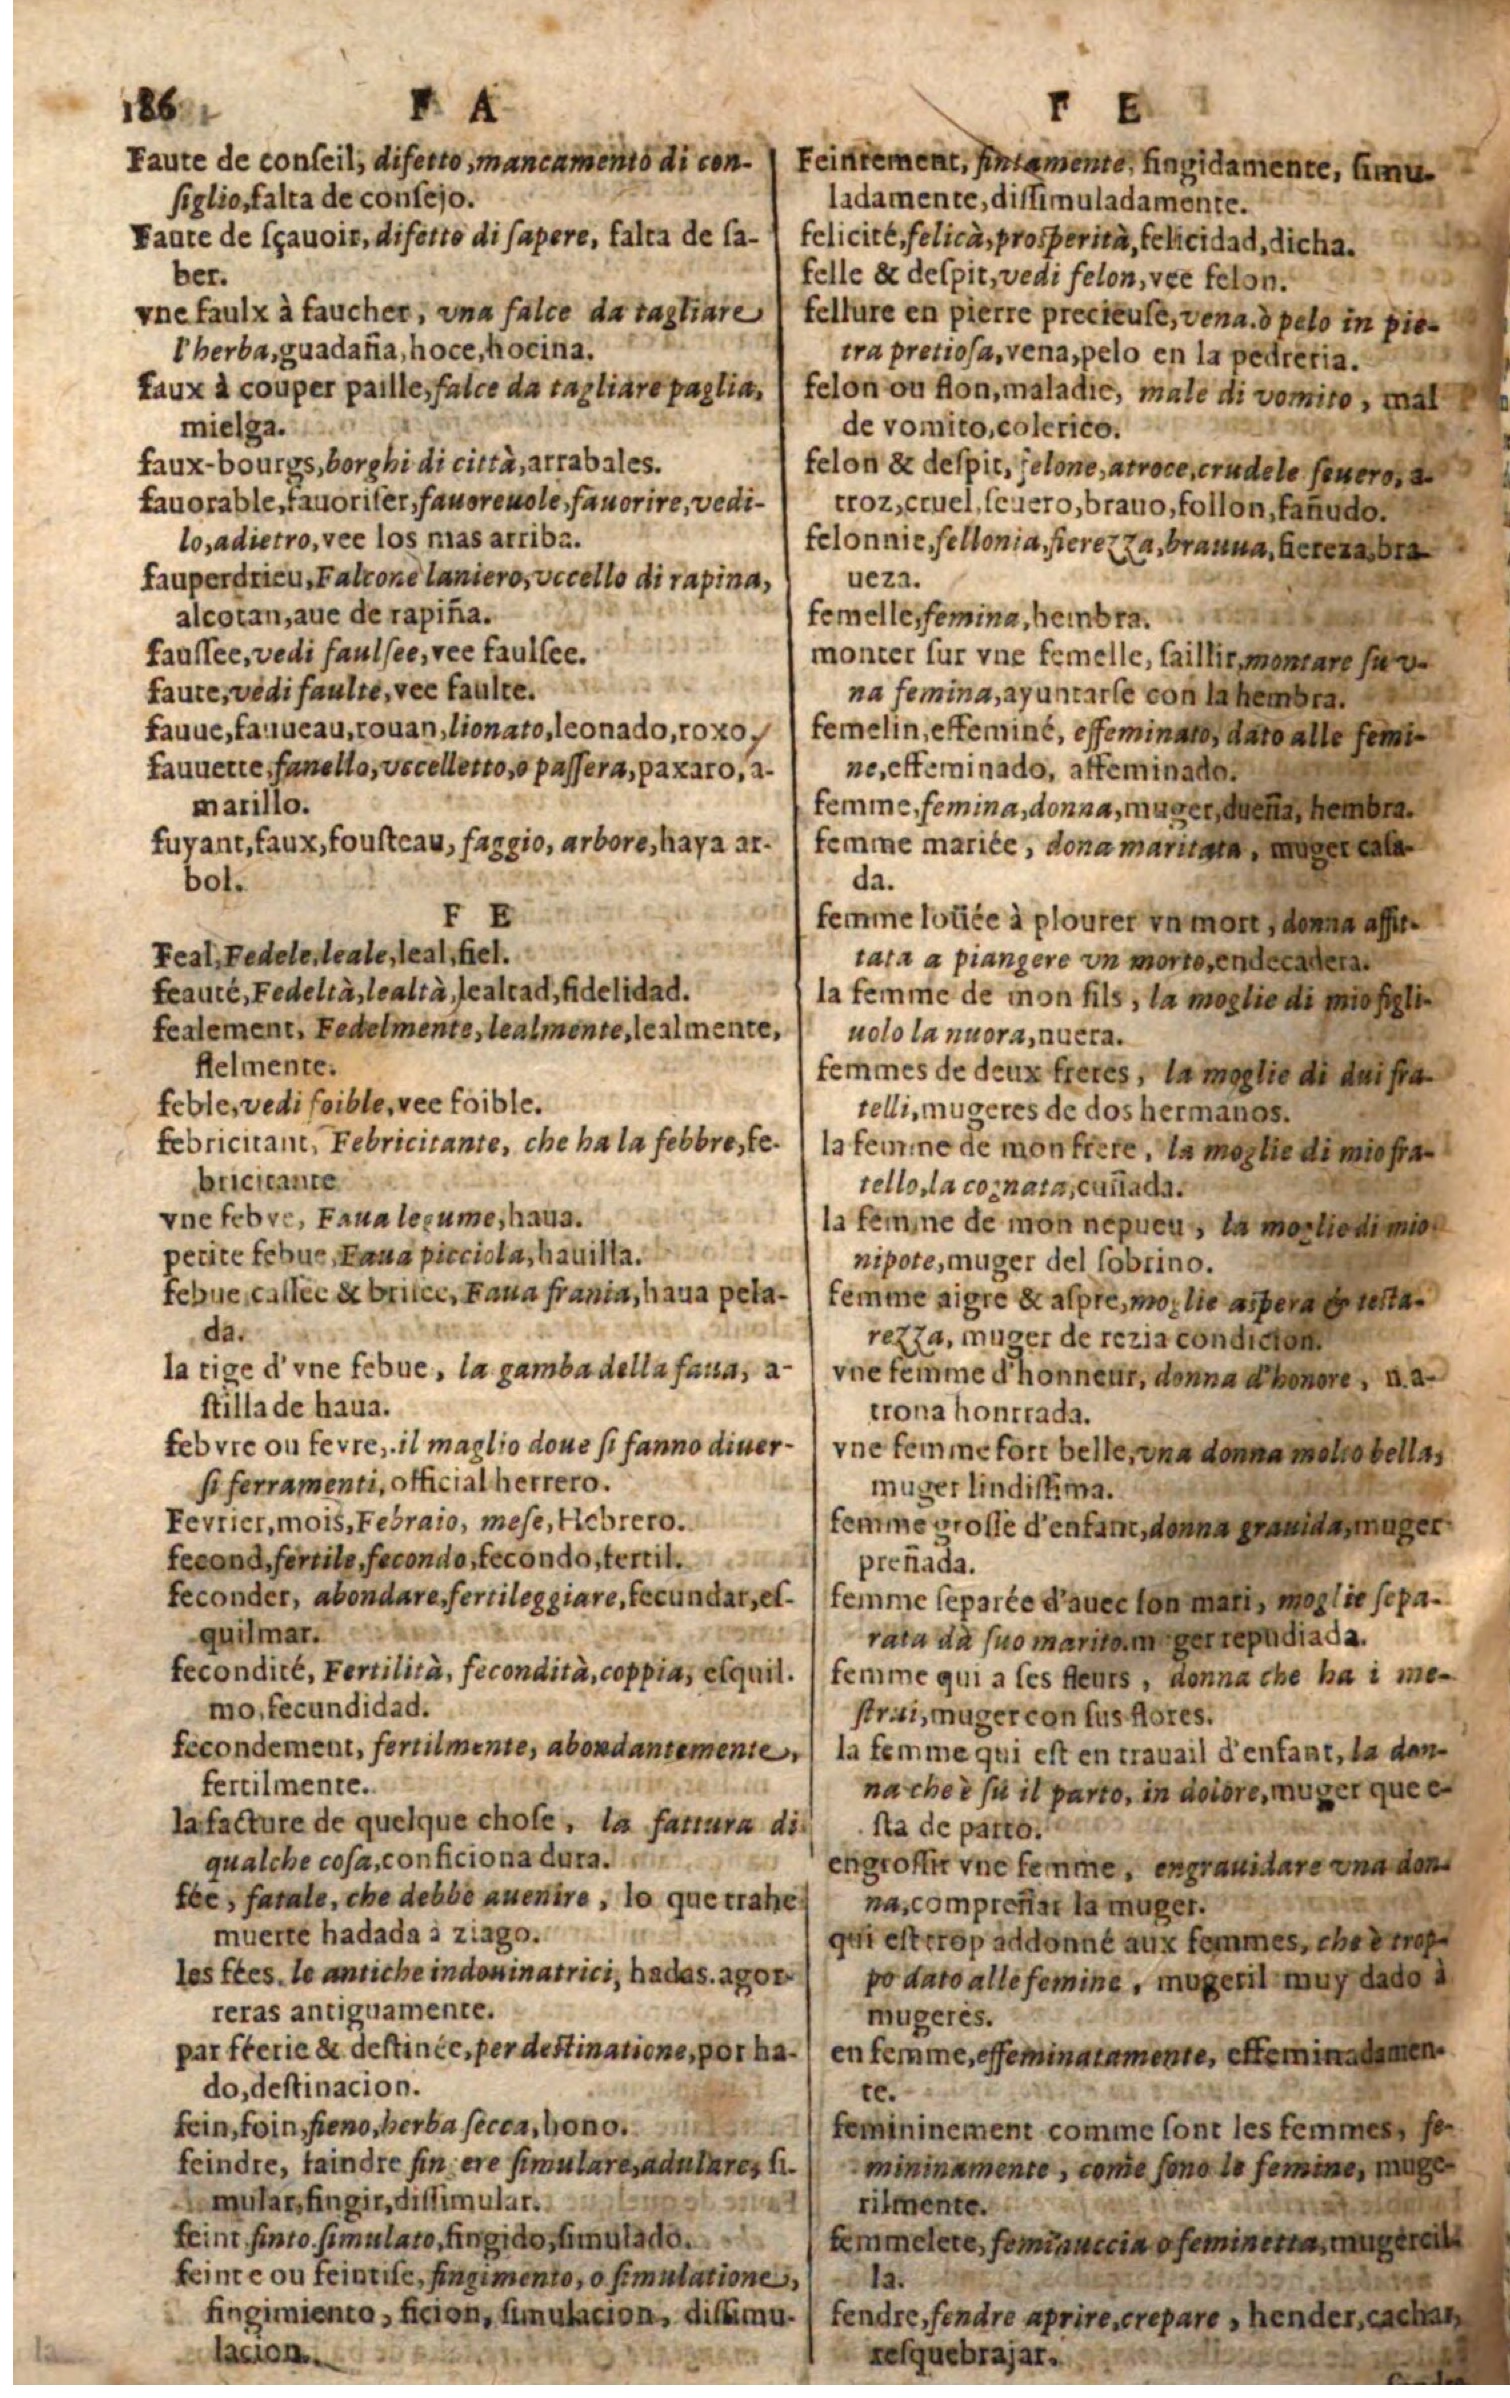 186
F A
Faute de conſeil, difetto, mancamento di con-
ſiglio, falta de conſejo.
Faute de ſçauoir, difetto di ſapere, falta de ſa-
ber.
vne faulx à faucher, vna falce da tagliare
l'herba, guadaña, hoce, hocina.
faux à couper paille, falce da tagliare paglia,
mielga.
faux-bourgs, borghi di città, arrabales.
fauorable, fauoriſer, fauoreuole, fauorire, vedi-
lo, adietro, vee los mas arriba.
fauperdrieu, Falcone laniero, vccello di rapina,
alcotan, aue de rapiña.
fauſſee, vedi faulſee, vee faulſee.
faute, vedi faulte, vee faulte.
fauue, fauueau, rouan, lionato, leonado, roxo,
fauuette, fanello, vccelletto, o paſſera, paxaro, a-
marillo.
fuyant, faux, fouſteau, faggio, arbore, haya ar-
bol.
F E
Feal, Fedele, leale, leal, fiel.
feauté, Fedeltà, lealtà, lealtad, fidelidad.
fealement, Fedelmente, lealmente, lealmente,
fielmente.
feble, vedi foible, vee foible.
febricitant, Febricitante, che ha la febbre, fe-
bricitante
vne febve, Faua legume, haua.
petite febue, Faua picciola, hauilla.
febue caſſée & briſee, Faua frania, haua pela-
da.
la tige d'vne febue, la gamba della faua, a-
ſtilla de haua.
febvre ou fevre, il maglio doue ſi fanno diuer-
ſi ferramenti, official herrero.
Fevrier, mois, Febraio, meſe, Hebrero.
fecond, fertile, fecondo, fecondo, fertil.
feconder, abondare, fertileggiare, fecundar, eſ-
quilmar.
fecondité, Fertilità, fecondità, coppia, eſquil.
mo, fecundidad.
fecondement, fertilmente, abondantemente,
fertilmente.
la facture de quelque choſe, la fattura di
qualche coſa, conficiona dura.
fée, fatale, che debbe auenire, lo que trahe
muerte hadada à ziago.
les fées, le antiche indouinatrici, hadas. agor-
reras antiguamente.
par féerie & deſtinée, per deſtinatione, por ha-
do, deſtinacion.
fein, foin, fieno, herba ſecca, hono.
feindre, faindre fin ere ſimulare, adulare, ſi-
mular, fingir, diſſimular.
feint finto ſimulato, fingido, ſimulado.
feinte ou feintiſe, fingimento, o ſimulatione,
fingimiento, ficion, ſimulacion, diſſimu-
lacion.
F E
Feintement, fintamente, fingidamente, ſimu-
ladamente, diſſimuladamente.
felicité, felicà, proſperità, felicidad, dicha.
felle & deſpit, vedi felon, vee felon.
fellure en pierre precieuſe, vena. ò pelo in pie-
tra pretioſa, vena, pelo en la pedreria.
felon ou flon, maladie, male di vomito, mal
de vomito, colerico.
felon & deſpit, felone, atroce, crudele ſeuero, a-
troz, cruel, ſeuero, brauo, follon, ſañudo.
felonnie, fellonia, fierezza, brauua, fiereza, bra-
ueza.
femelle, femina, hembra.
monter ſur vne femelle, ſaillir, montare ſu v-
na femina, ayuntarſe con la hembra.
femelin, effeminé, effeminato, dato alle femi-
ne, effeminado, affeminado.
femme, femina, donna, muger, dueña, hembra.
femme mariée, dona maritata, muger caſa-
da.
femme loüée à plourer vn mort, donna affit-
tata a piangere vn morto, endecadera.
la femme de mon fils, la moglie di mio figli-
uolo la nuora, nuera.
femmes de deux freres, la moglie di dui fra-
telli, mugeres de dos hermanos.
la femme de mon frere, la moglie di mio fra-
tello, la cognata, cuñada.
la femme de mon nepueu, la moglie di mio
nipote, muger del ſobrino.
femme aigre & aſpre, moglie aſpera & teſta-
rezza, muger de rezia condicion.
vne femme d'honneur, donna d'honore, ma-
trona honrrada.
vne femme fort belle, vna donna molto bella,
muger lindiſſima.
femme groſſe d'enfant, donna grauida, muger
preñada.
femme ſeparée d'auec ſon mari, moglie ſepa-
rata dà ſuo marito. muger repudiada.
femme qui a ſes fleurs, donna che ha i me-
ſtrui, muger con ſus flores.
la femme qui eſt en trauail d'enfant, la don-
na che è ſù il parto, in dolore, muger que e-
ſta de parto.
engroſſir vne femme, engrauidare vna don-
na, compreñar la muger.
qui eſt trop addonné aux femmes, che è trop-
po dato alle femine, mugeril muy dado à
mugeres.
en femme, effeminatamente, effeminadamen-
te.
femininement comme ſont les femmes, fe-
mininamente, come ſono le femine, muge-
rilmente.
femmelete, feminuccia o feminetta, mugercil-
la.
fendre, fendre aprire, crepare, hender, cachar,
reſquebrajar.